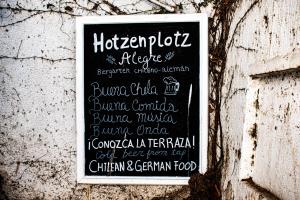 Hotzenplotz
Alegre
Biergarten chileno-alemán
Buena Chela
Buena Comida
Buena Música
Buena Onda
¡CONOZCA LA TERRAZA!
Cold beer from tap
CHILEAN & GERMAN FOOD